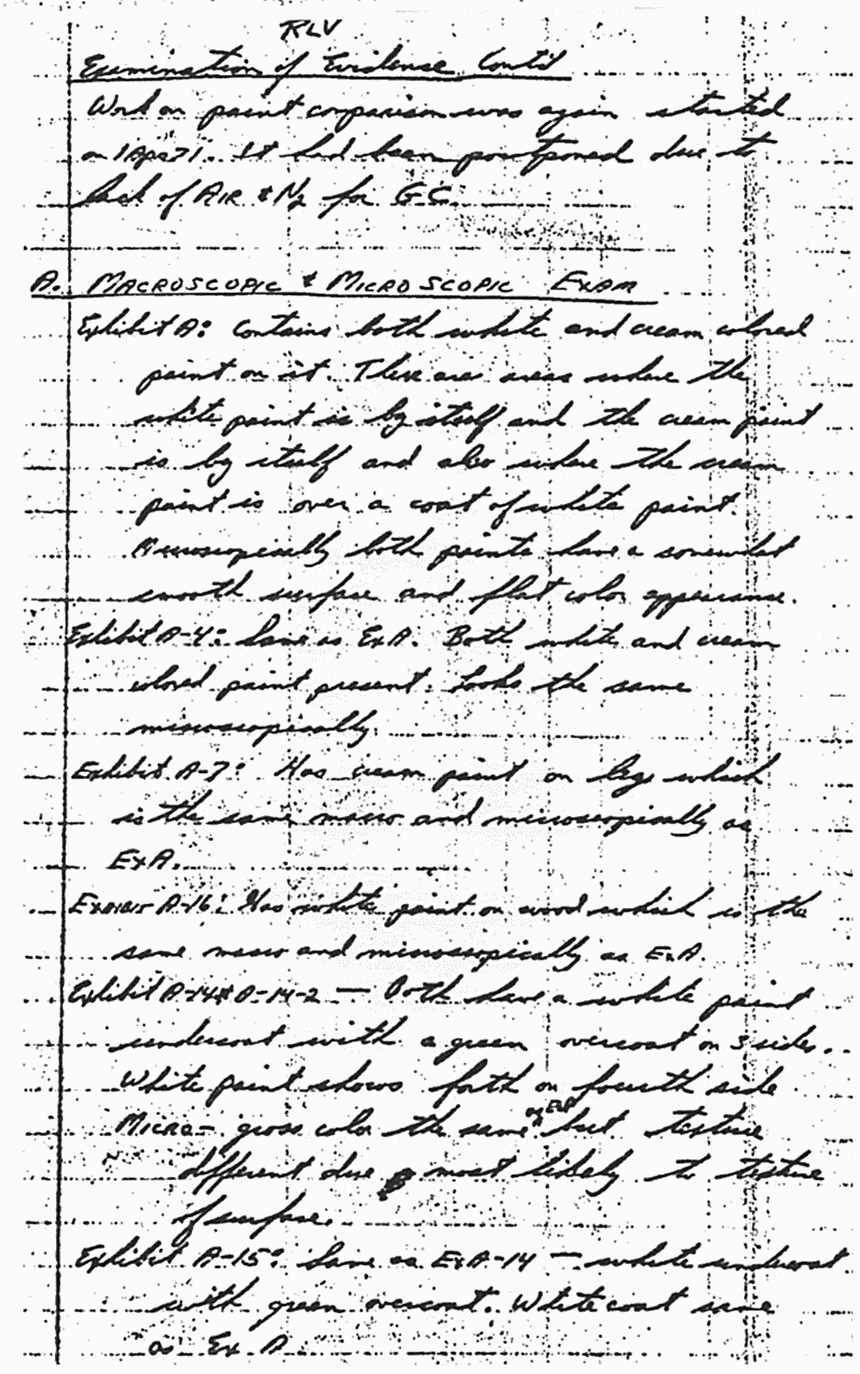 RLV
Examination of Evidence Cont'd
Work on paint comparison was again started
on 1Apr71. It had been postponed due to
lack of AIR & N2 for GC.
A. MACROSCOPIC & MICROSCOPIC EXAM
Exhibit A: Contains both white and cream colored
paint on it. There are areas where the
white paint is by itself and the cream paint
is by itself and also where the cream
paint is over a coat of white paint.
Microscopically both paints have a somewhat
smooth surface and flat color appearance.
Exhibit A-4: Same as Ex A. Both white and cream
colored paint present. Looks the same
microscopically.
Exhibit A-7: Has cream paint on legs which
is the same macro and microscopically as
Ex A.
Exhibit A-16: Has white paint on wood which is the
same macro and microscopically as Ex A.
Exhibit A-14 & A-14-2 — Both have a white paint
undercoat with a green overcoat on 3 sides.
White paint shows forth on fourth side
Micro- gross color the same as Ex A but texture
different due most likely to texture
of surface.
Exhibit A-15: Same as Ex A-14 — white undercoat
with green overcoat. White coat same
as Ex A